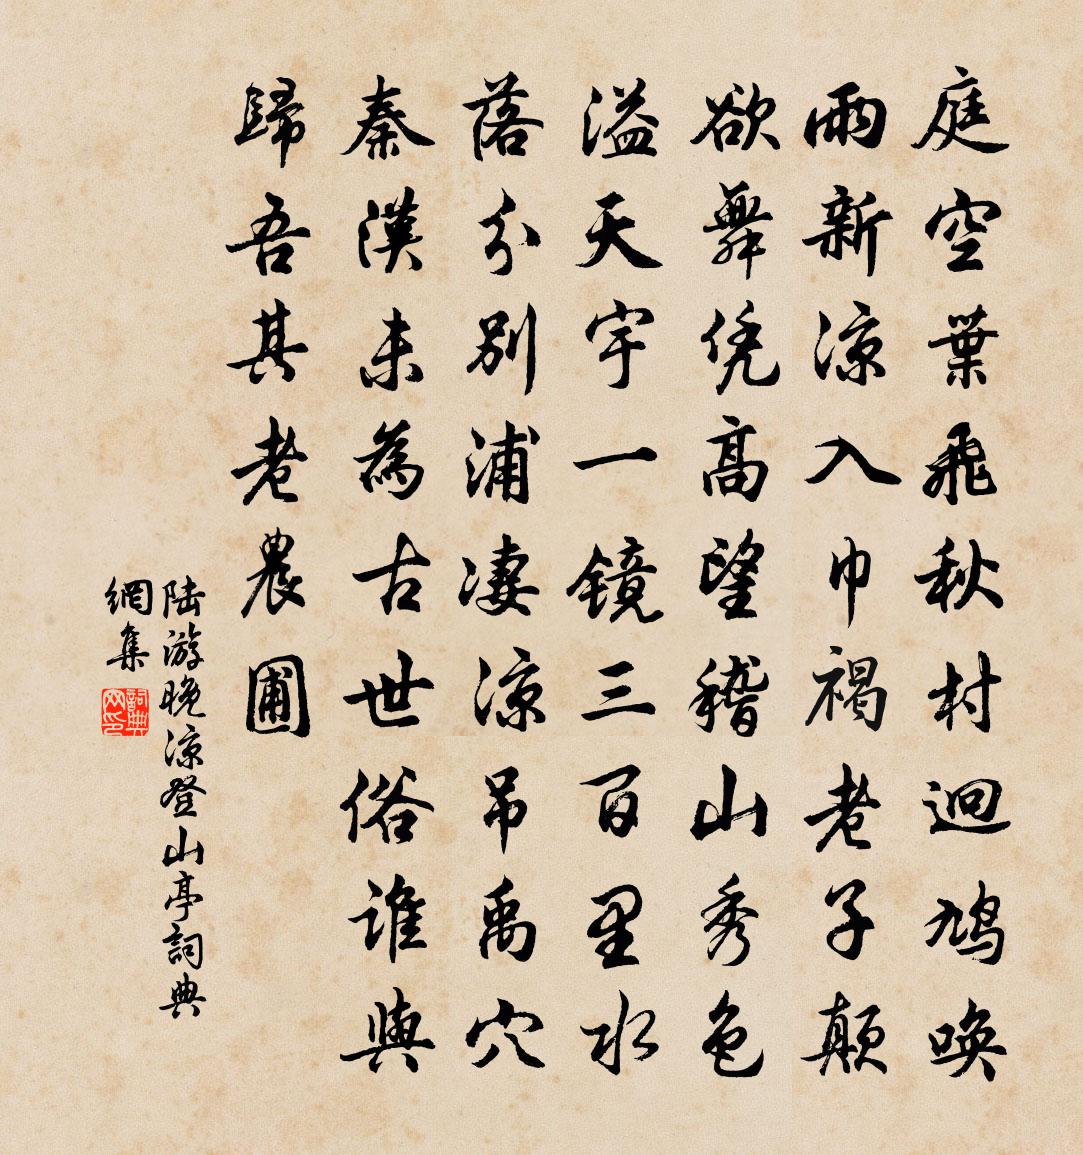 庭空葉飛秋村迥鳩喚
雨新涼入巾褐老子顛
欲舞凭高望稽山秀色
溢天宇一镜三百里水
落分別浦凄涼吊禹穴
秦漢未為古世俗谁與
歸吾其老農圃
陆游晚涼登山亭詞典
網集
詞典
网印